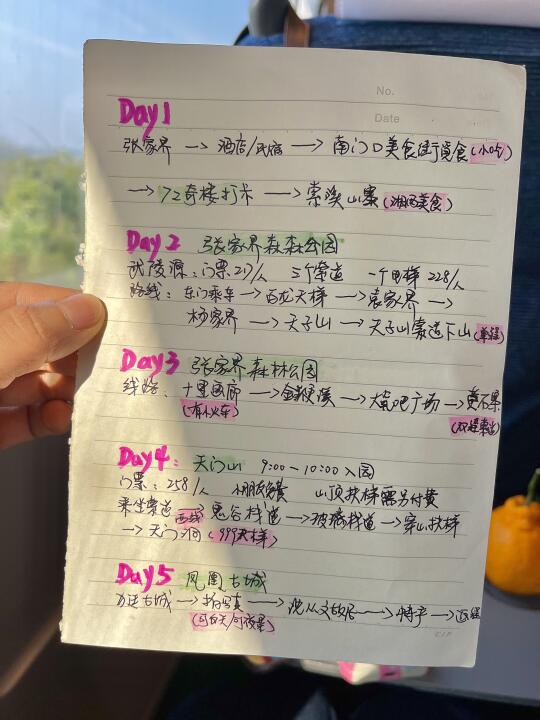 No.
Date
Day1
张家界 → 酒店/民宿 → 南门口美食街觅食(小吃)
→ 72奇楼打卡 → 索溪山寨(湘西美食)
Day2 张家界森森公园
武陵源:门票217/人 三个索道 一个电梯 228/人
路线:东门乘车 → 百龙天梯 → 袁家界 →
杨家界 → 天子山 → 天子山索道下山(单程)
Day3 张家界森林公园
线路:十里画廊 → 金鞭溪 → 大氧吧广场 → 黄石寨
(有小火车) (双程索道)
Day4:天门山 9:00-10:00入园
门票:258/人 山顶扶梯需另付费
乘坐索道 西线 → 鬼谷栈道 → 玻璃栈道 → 穿山扶梯
→ 天门洞(999天梯)
Day5 凤凰古城
古城 → 拍写真 → 沈从文故居 → 特产 → 返程
(可白天/可夜景)